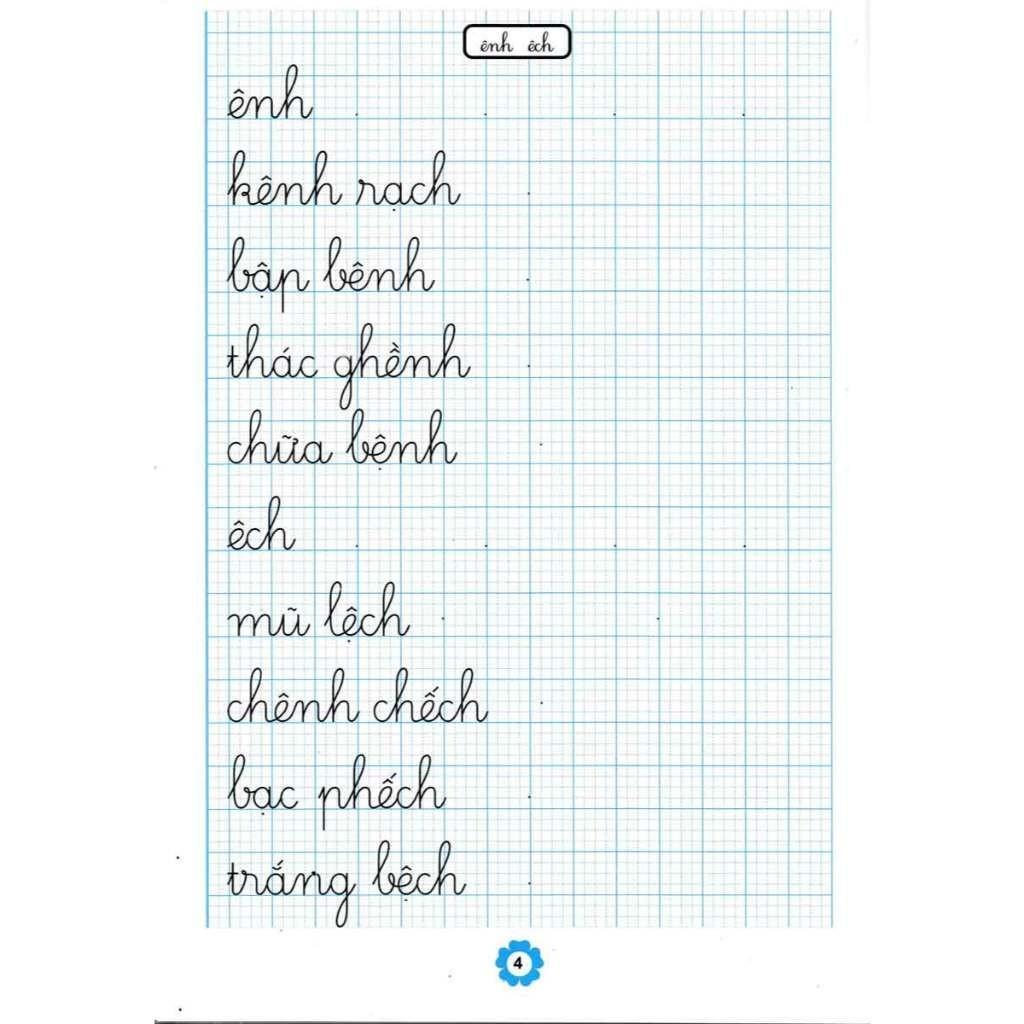 ênh êch
ênh
kênh rạch
bập bênh
thác ghềnh
chữa bệnh
êch
mũ lệch
chênh chếch
bạc phếch
trắng bệch
4